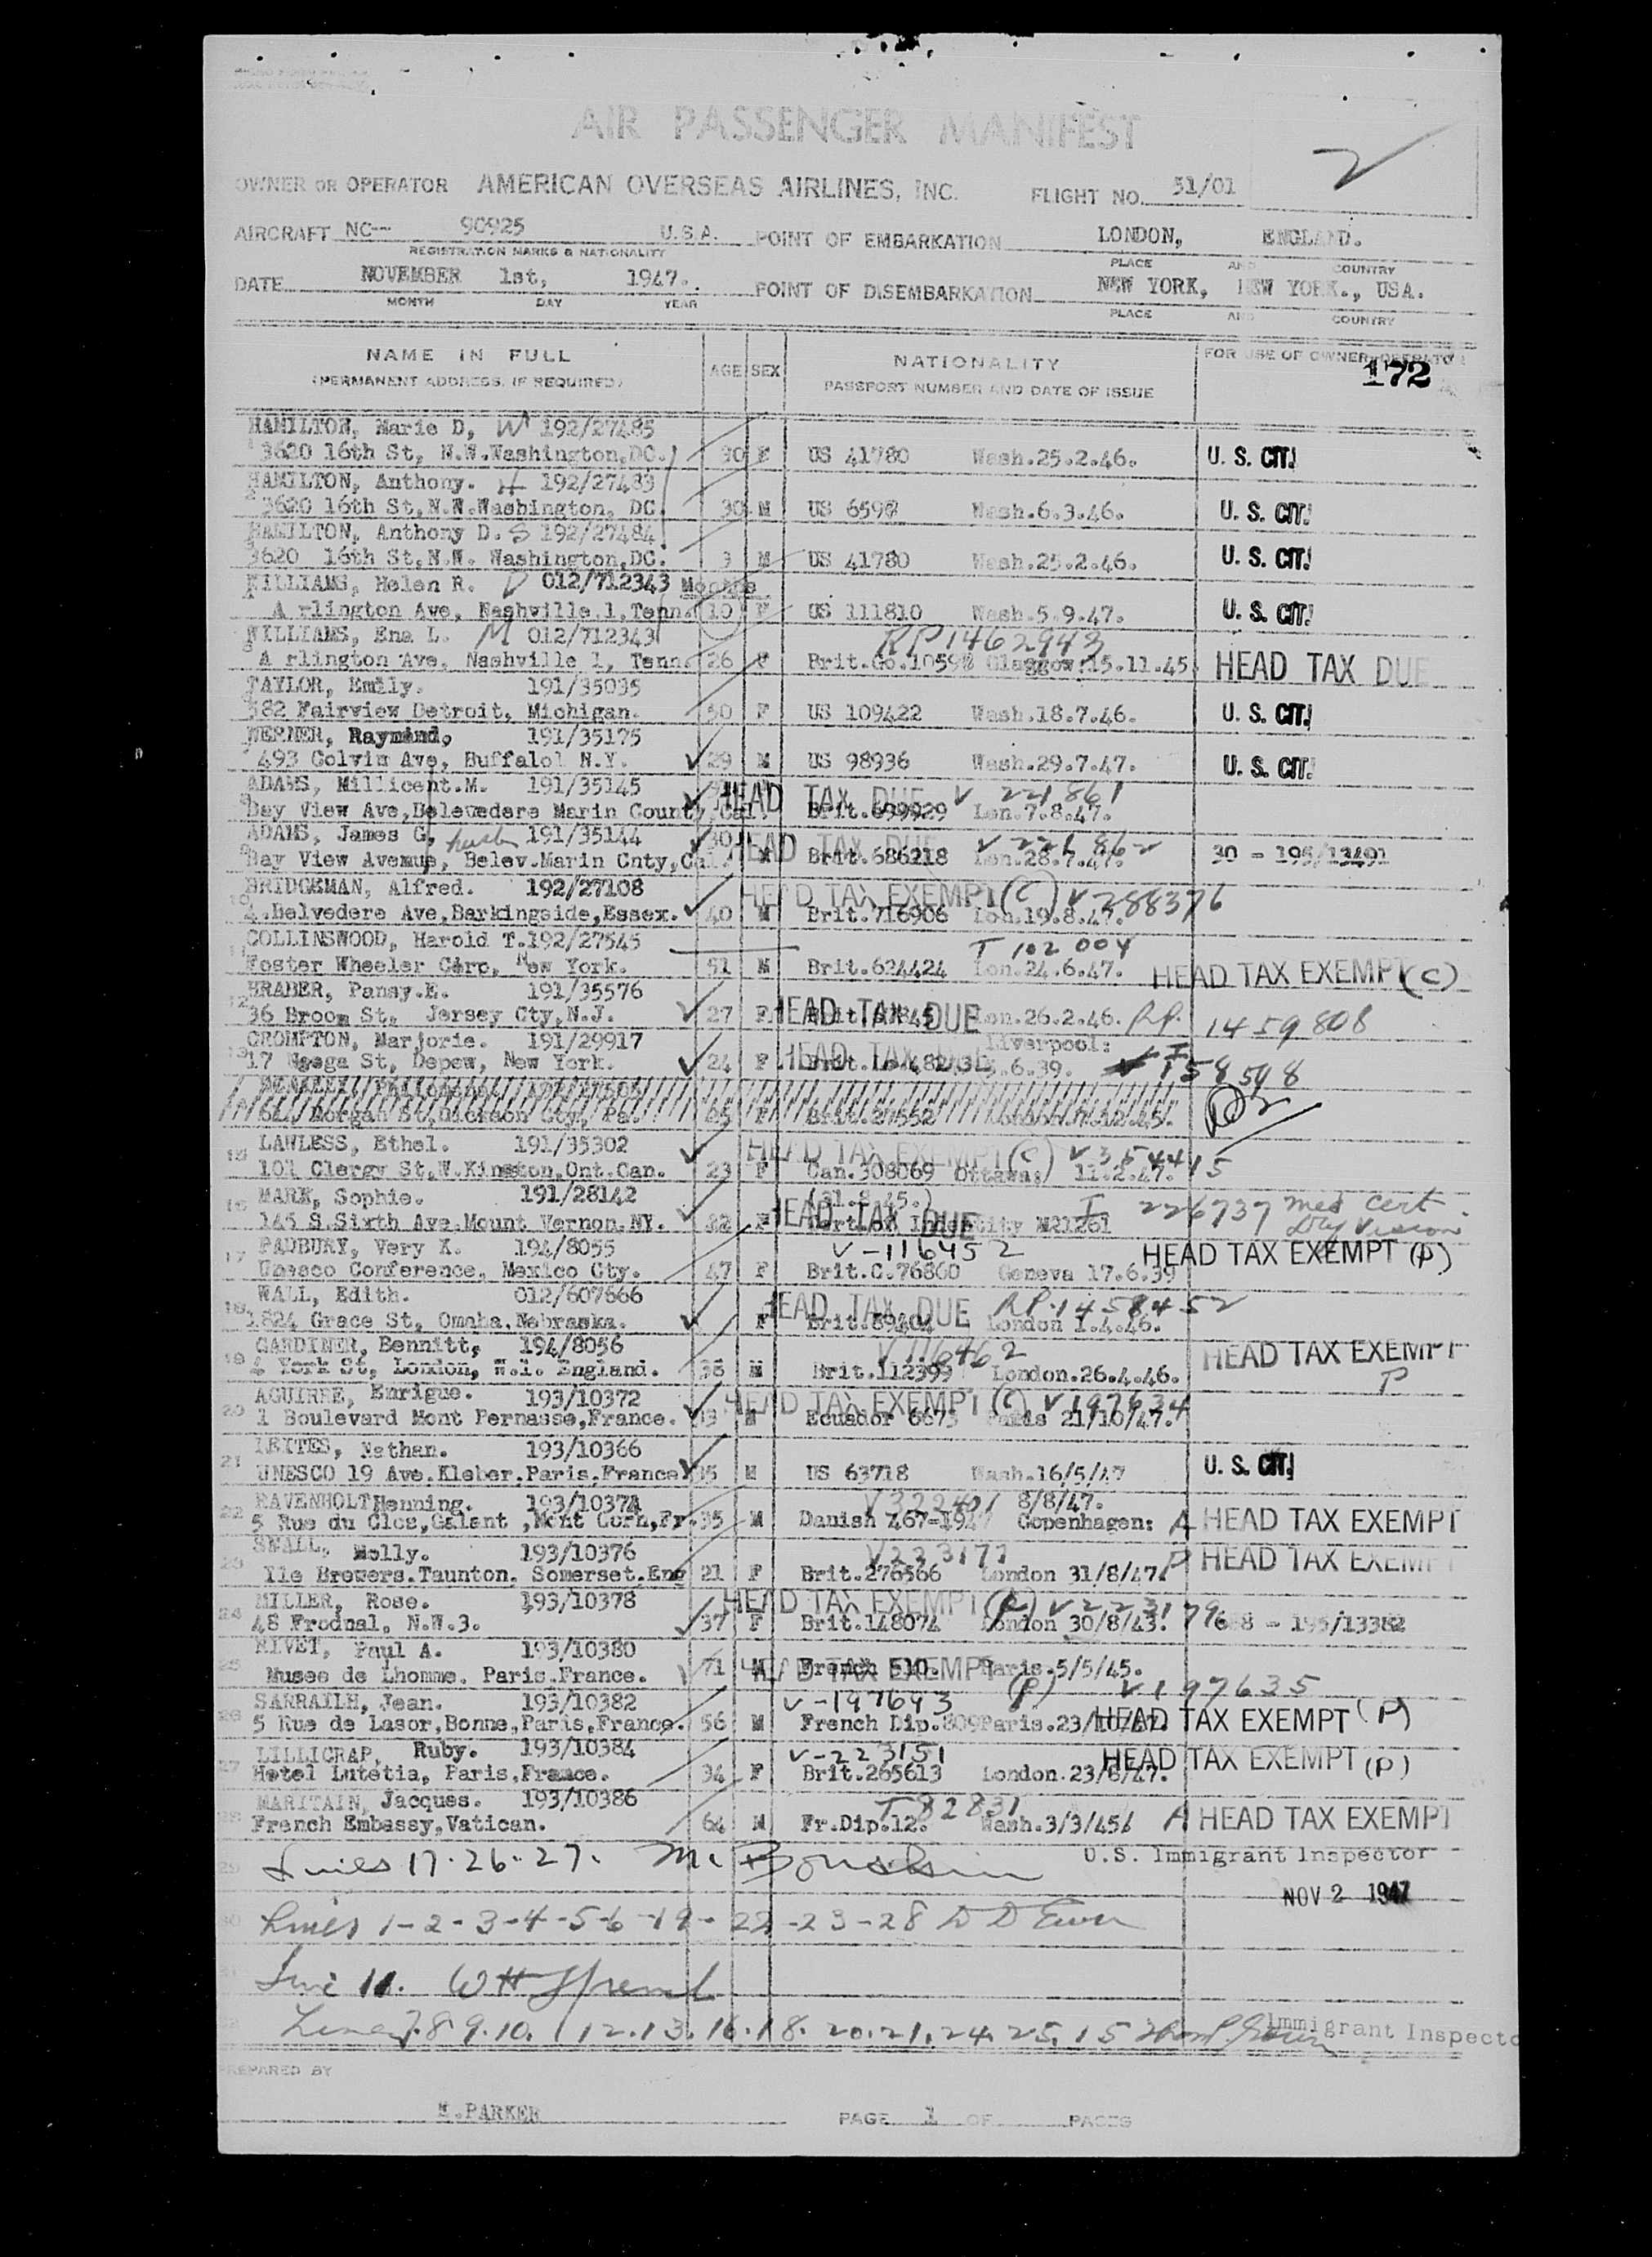 AIR PASSENGER MANIFEST
OWNER OR OPERATOR AMERICAN OVERSEAS AIRLINES, INC. FLIGHT NO. 51/01
AIRCRAFT NC-- 90925 U.S.A. POINT OF EMBARKATION LONDON, ENGLAND.
REGISTRATION MARKS & NATIONALITY PLACE AND COUNTRY
DATE NOVEMBER 1st, 1947. POINT OF DISEMBARKATION NEW YORK, NEW YORK., USA.
MONTH DAY YEAR PLACE AND COUNTRY
NAME IN FULL AGE SEX NATIONALITY FOR USE OF OWNER-OPERATOR
(PERMANENT ADDRESS, IF REQUIRED) PASSPORT NUMBER AND DATE OF ISSUE 172
HAMILTON, Marie D, W 192/27485
3620 16th St, N.W.Washington,DC. 30 F US 41780 Wash.25.2.46. U. S. CIT.
HAMILTON, Anthony. H 192/27483
3620 16th St,N.W.Washington, DC. 30 M US 6598 Wash.6.3.46. U. S. CIT.
HAMILTON, Anthony D. S 192/27484
3620 16th St,N.W. Washington,DC. M US 41780 Wash.25.2.46. U. S. CIT.
WILLIAMS, Helen R. D 012/712343 Months
A rlington Ave, Nashville 1,Tenn. 10 F US 111810 Wash.5.9.47. U. S. CIT.
WILLIAMS, Ena L. M 012/712343 RP1462943
A rlington Ave, Nashville 1, Tenn. 26 F Brit.Go.10598 Glasgow.15.11.45. HEAD TAX DUE
TAYLOR, Emily. 191/35035
382 Fairview Detroit, Michigan. 50 F US 109422 Wash.18.7.46. U. S. CIT.
WERNER, Raymond, 191/35175
493 Colvin Ave, Buffalol N.Y. 29 M US 98936 Wash.29.7.47. U. S. CIT.
ADAMS, Millicent.M. 191/35145 HEAD TAX DUE V 221861
Bay View Ave,Belevedere Marin County,Cal. Brit.699929 Lon.7.8.47.
ADAMS, James G, husb 191/35144 30 HEAD TAX DUE V 221862
Bay View Avenue, Belev.Marin Cnty,Cal. M Brit.686218 Lon.28.7.47. 30 - 195/13491
BRIDGEMAN, Alfred. 192/27108 HEAD TAX EXEMPT (C) V288376
4.Belvedere Ave,Barkingside,Essex. 40 M Brit.716906 Lon.19.8.47.
COLLINSWOOD, Harold T.192/27545 T 102004
Foster Wheeler Corp, New York. 51 M Brit.624424 Lon.24.6.47. HEAD TAX EXEMPT (C)
HRABER, Pansy.E. 191/35576
36 Broom St, Jersey Cty,N.J. 27 F HEAD TAX DUE Lon.26.2.46. RP. 1459808
CROMPTON, Marjorie. 191/29917 HEAD TAX DUE Liverpool:
17 St, Depew, New York. 24 F 6.39. 158598
64, Morgan St,Dickson Cty, Pa. 25 F Brit.27552
LAWLESS, Ethel. 191/35302 HEAD TAX EXEMPT (C) V354415
101 Clergy St,W.Kingston,Ont.Can. 23 F Can.308069 Ottawa: 11.2.47.
MARK, Sophie. 191/28142 (31.8.45.) I 226737 med cert.
145 S.Sixth Ave.Mount Vernon.NY. 22 F HEAD TAX DUE Cert.of Indentity
PADBURY, Very X. 194/8055 V-116452 HEAD TAX EXEMPT (P)
Unesco Conference, Mexico Cty. 47 F Brit.C.76860 Geneva 17.6.39
WALL, Edith. 012/607666 HEAD TAX DUE RP.1458452
3824 Grace St, Omaha.Nebraska. F Brit.89404 London 1.4.46.
GARDINER, Bennitt, 194/8056 V116462 HEAD TAX EXEMPT
4 York St, London, W.1. England. 38 M Brit.112399 London.26.4.46. P
AGUIRRE, Enrigue. 193/10372 HEAD TAX EXEMPT (C) V197634
1 Boulevard Mont Pernasse,France. M Ecuador 6675 Paris 21/10/47.
LEITES, Nathan. 193/10366
UNESCO 19 Ave.Kleber.Paris.France M US 63718 Wash.16/5/47 U. S. CIT.
RAVENHOLT Henning. 193/10374 V322401 8/8/47.
5 Rue du Clos,Galant ,Mont Corn,Fr. 35 M Danish 467-1947 Copenhagen: A HEAD TAX EXEMPT
SMALL, Molly. 193/10376 V223177 P HEAD TAX EXEMPT
11e Brewers.Taunton. Somerset.Eng 21 F Brit.276566 London 31/8/47.
MILLER, Rose. 193/10378 HEAD TAX EXEMPT (P) V223179
48 Frodnal, N.W.3. 37 F Brit.148074 London 30/8/43. - 195/13382
RIVET, Paul A. 193/10380
Musee de Lhomme. Paris.France. 71 M HEAD TAX EXEMPT French 510. Paris.5/5/45.
(P) V197635
SARRAILH, Jean. 193/10382 V-197643
5 Rue de Lasor,Bonne,Paris,France. 56 M French Dip.809 Paris.23/10/47. HEAD TAX EXEMPT (P)
LILLICRAP, Ruby. 193/10384 V-223151
Hotel Lutetia, Paris,France. 34 F Brit.265613 London.23/8/47. HEAD TAX EXEMPT (P)
MARITAIN, Jacques. 193/10386 T82831
French Embassy,Vatican. 64 M Fr.Dip.12. Wash.3/3/45. A HEAD TAX EXEMPT
Lines 17.26.27. U.S. Immigrant Inspector
NOV 2 1947
Lines 1-2-3-4-5-6-19-22-23-28
Line 11.
Lines 7.8.9.10. 12.13.16.18. 20.21.24.25.15 Immigrant Inspecto
PREPARED BY
M.PARKER PAGE 1 OF PAGES